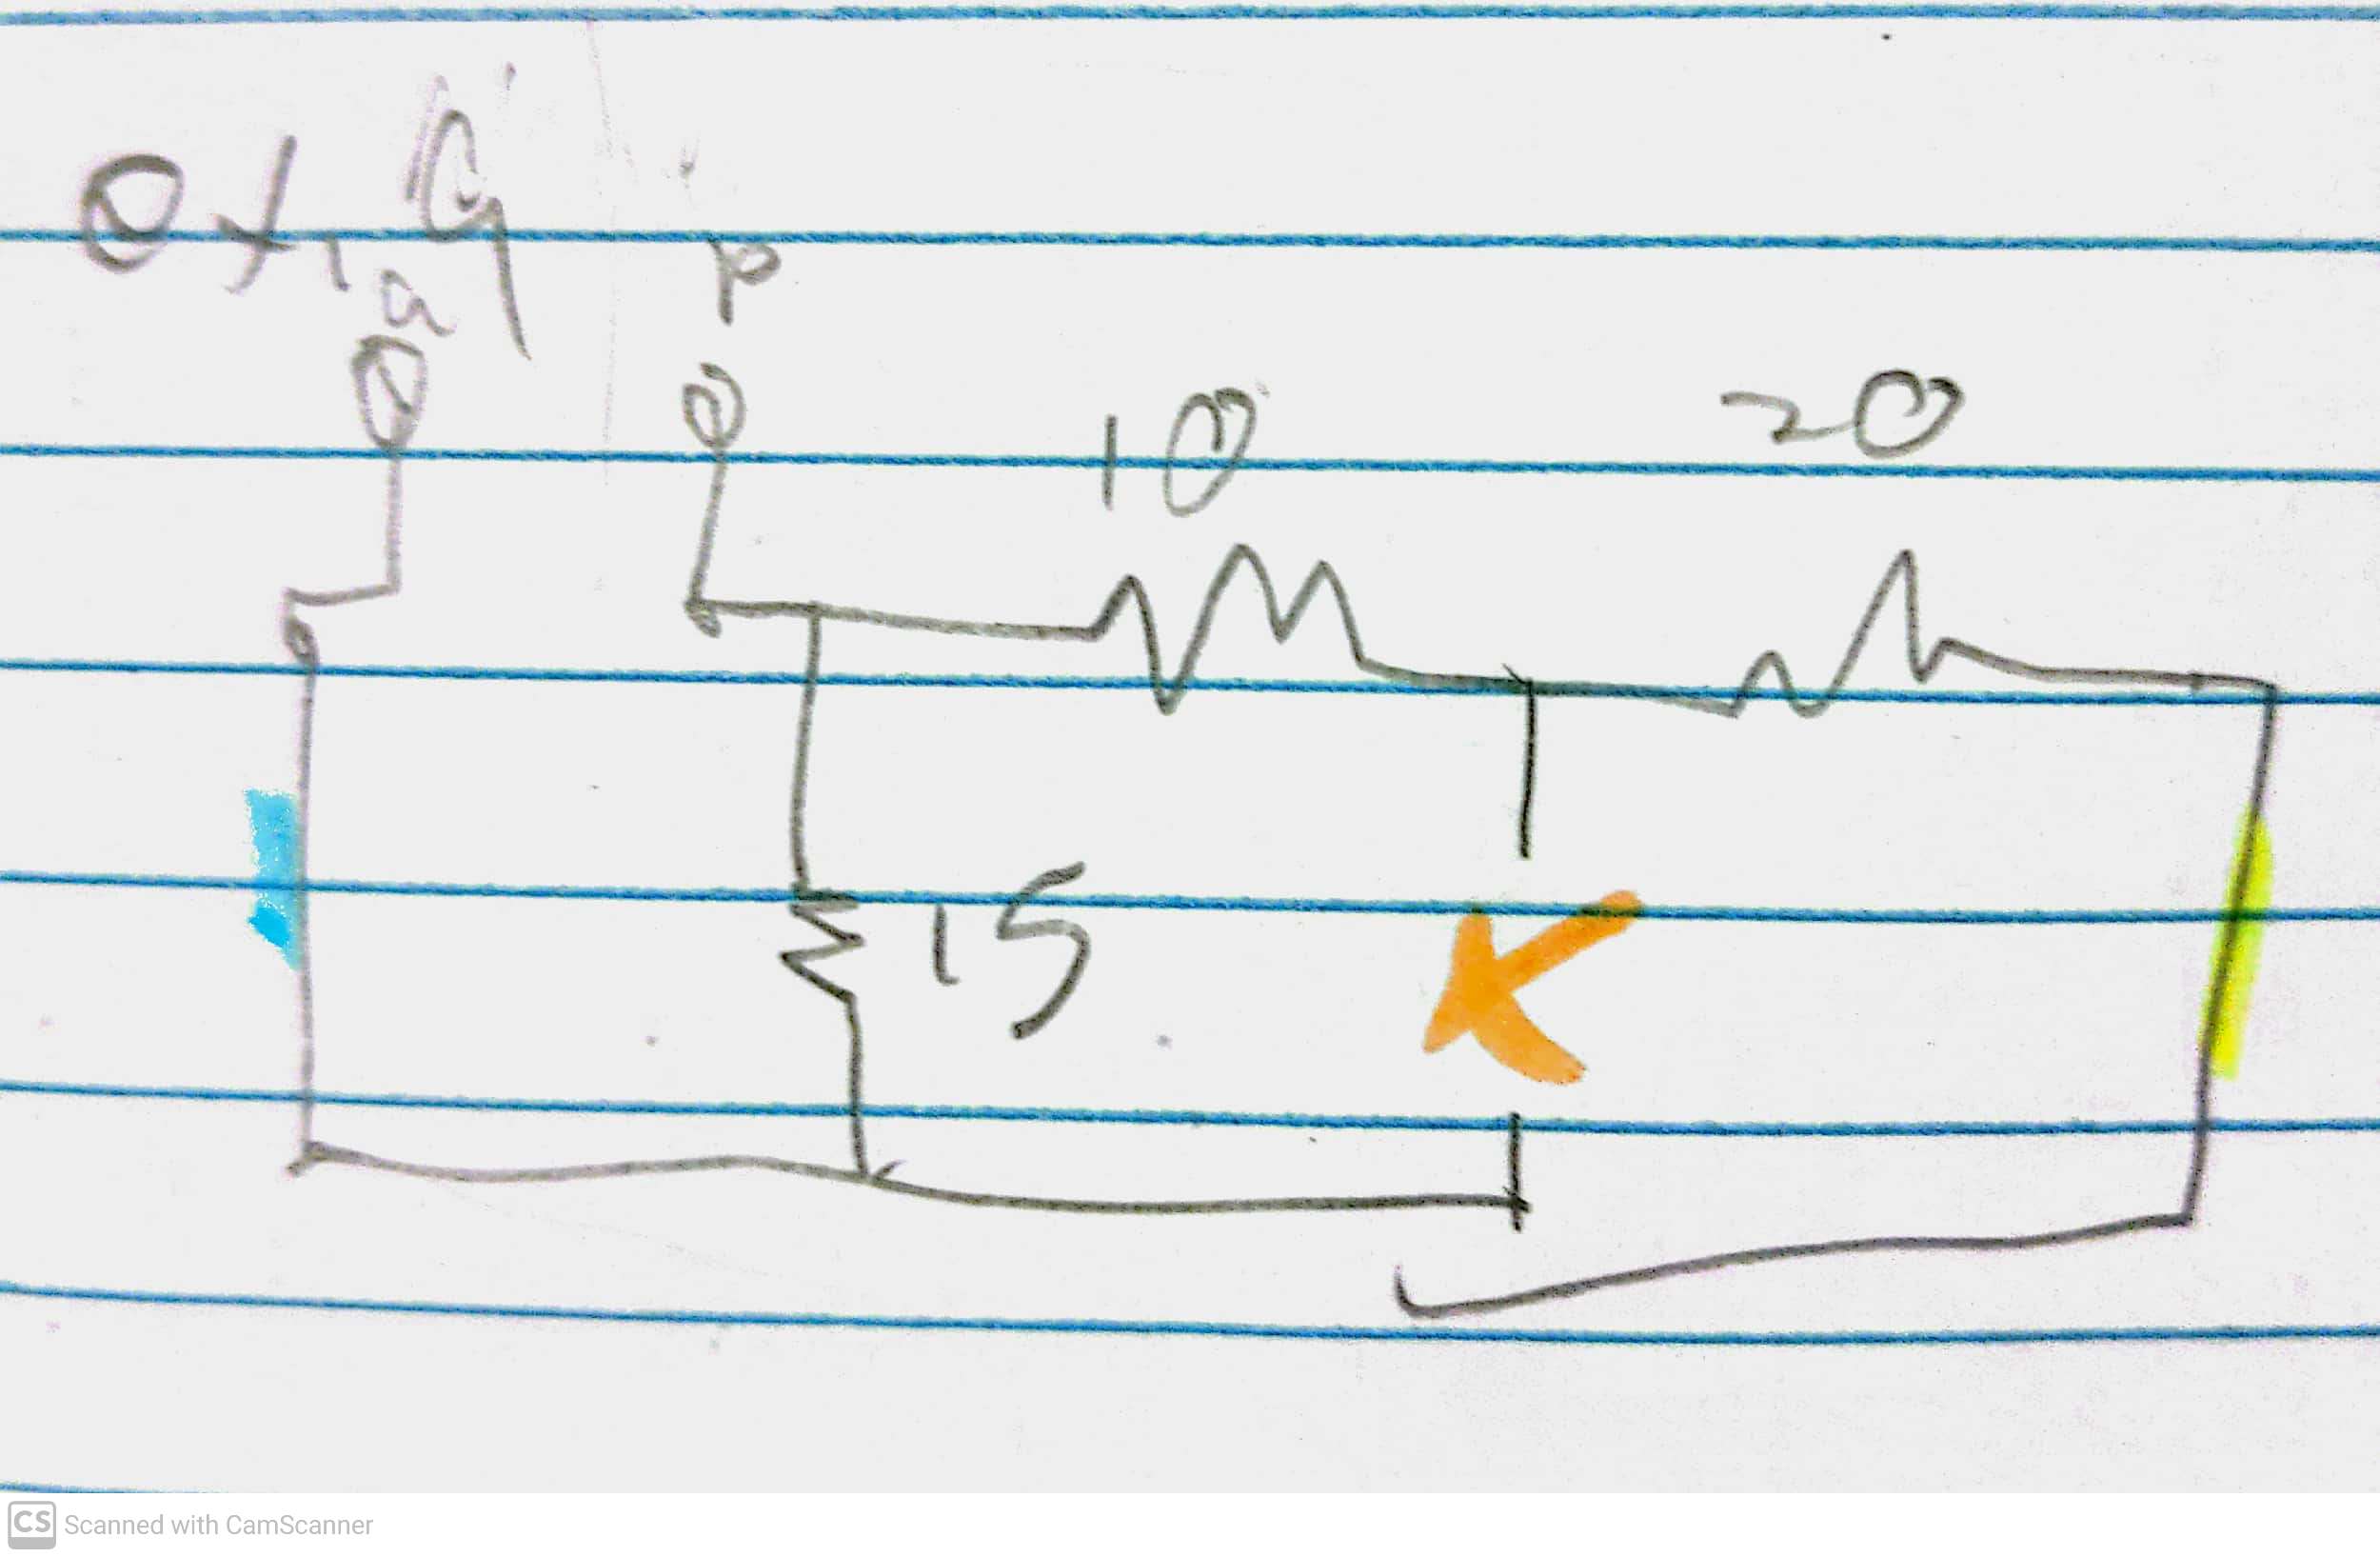 a
b
10
20
15
K
CS Scanned with CamScanner